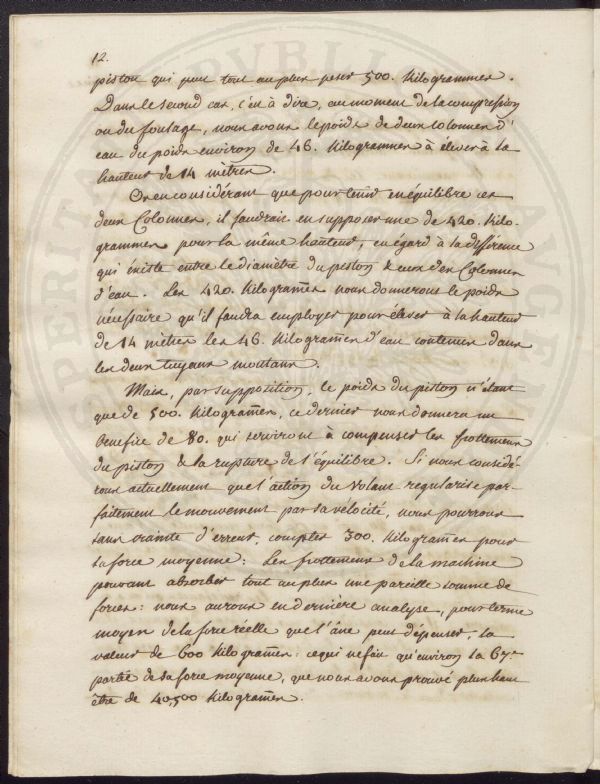 12.
piston qui peut tout au plus peser 500. Kilogrammes.
Dans le second cas, c'est à dire, au moment de la compression
ou du foulage, nous avons le poids de deux colonnes d'
eau du poids environ de 46. Kilogrammes à elever à la
hauteur de 14 mètres.
Or en considérant que pour tenir en équilibre ces
deux Colonnes, il faudrait en supposer une de 420. Kilo-
grammes pour la même hauteur, eu égard à la différence
qui éxiste entre le diamètre du piston & ceux des Colonnes
d'eau. Les 420. Kilogrames nous donnerons le poids
nécéssaire qu'il faudra employer pour élever à la hauteur
de 14 mètres les 46. Kilogrames d'eau contenus dans
les deux tuyaux montans.
Mais, par supposition, le poids du piston n'étant
que de 500. Kilogrames, ce dernier nous donnera un
benefice de 80. qui serviront à compenser les frottemens
du piston & la rupture de l'équilibre. Si nous considé-
rons actuellement que l'action du volant regularise par-
faitement le mouvement par sa vélocité, nous pourrons
sans crainte d'erreur, compter 300. Kilogrames pour
sa force moyenne: Les frottemens de la machine
pouvant absorber tout au plus une pareille somme de
forces: nous aurons en dernière analyse, pour terme
moyen de la force réelle que l'âne peut dépenser, la
valeur de 600 Kilogrames: ce qui ne fait qu'environ la 67.e
partie de sa force moyenne, que nous avons prouvé plus haut
être de 40,500 Kilogrames.